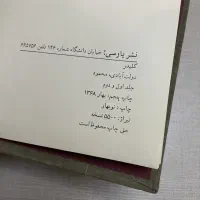 نشر پارسی؛ خیابان دانشگاه شماره ۱۴۲ تلفن
کلیدر
دولت‌آبادی، محمود
جلد اول و دوم
چاپ پنجم، بهار ۱۳۶۸
چاپ: نوبهار
تیراژ: ۵۵۰۰ نسخه
حق چاپ محفوظ است